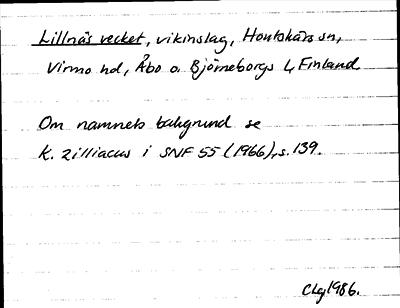 Lillnäs vecket, vikinslag, Houtskärs sn,
Virmo hd, Åbo o. Björneborgs L, Finland
Om namnets bakgrund se
K. Zilliacus i SNF 55 (1966), s. 139.
Clg 1986.